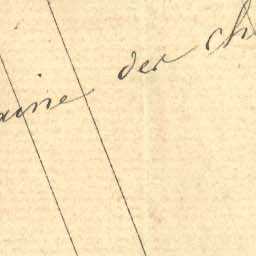 aine des ch